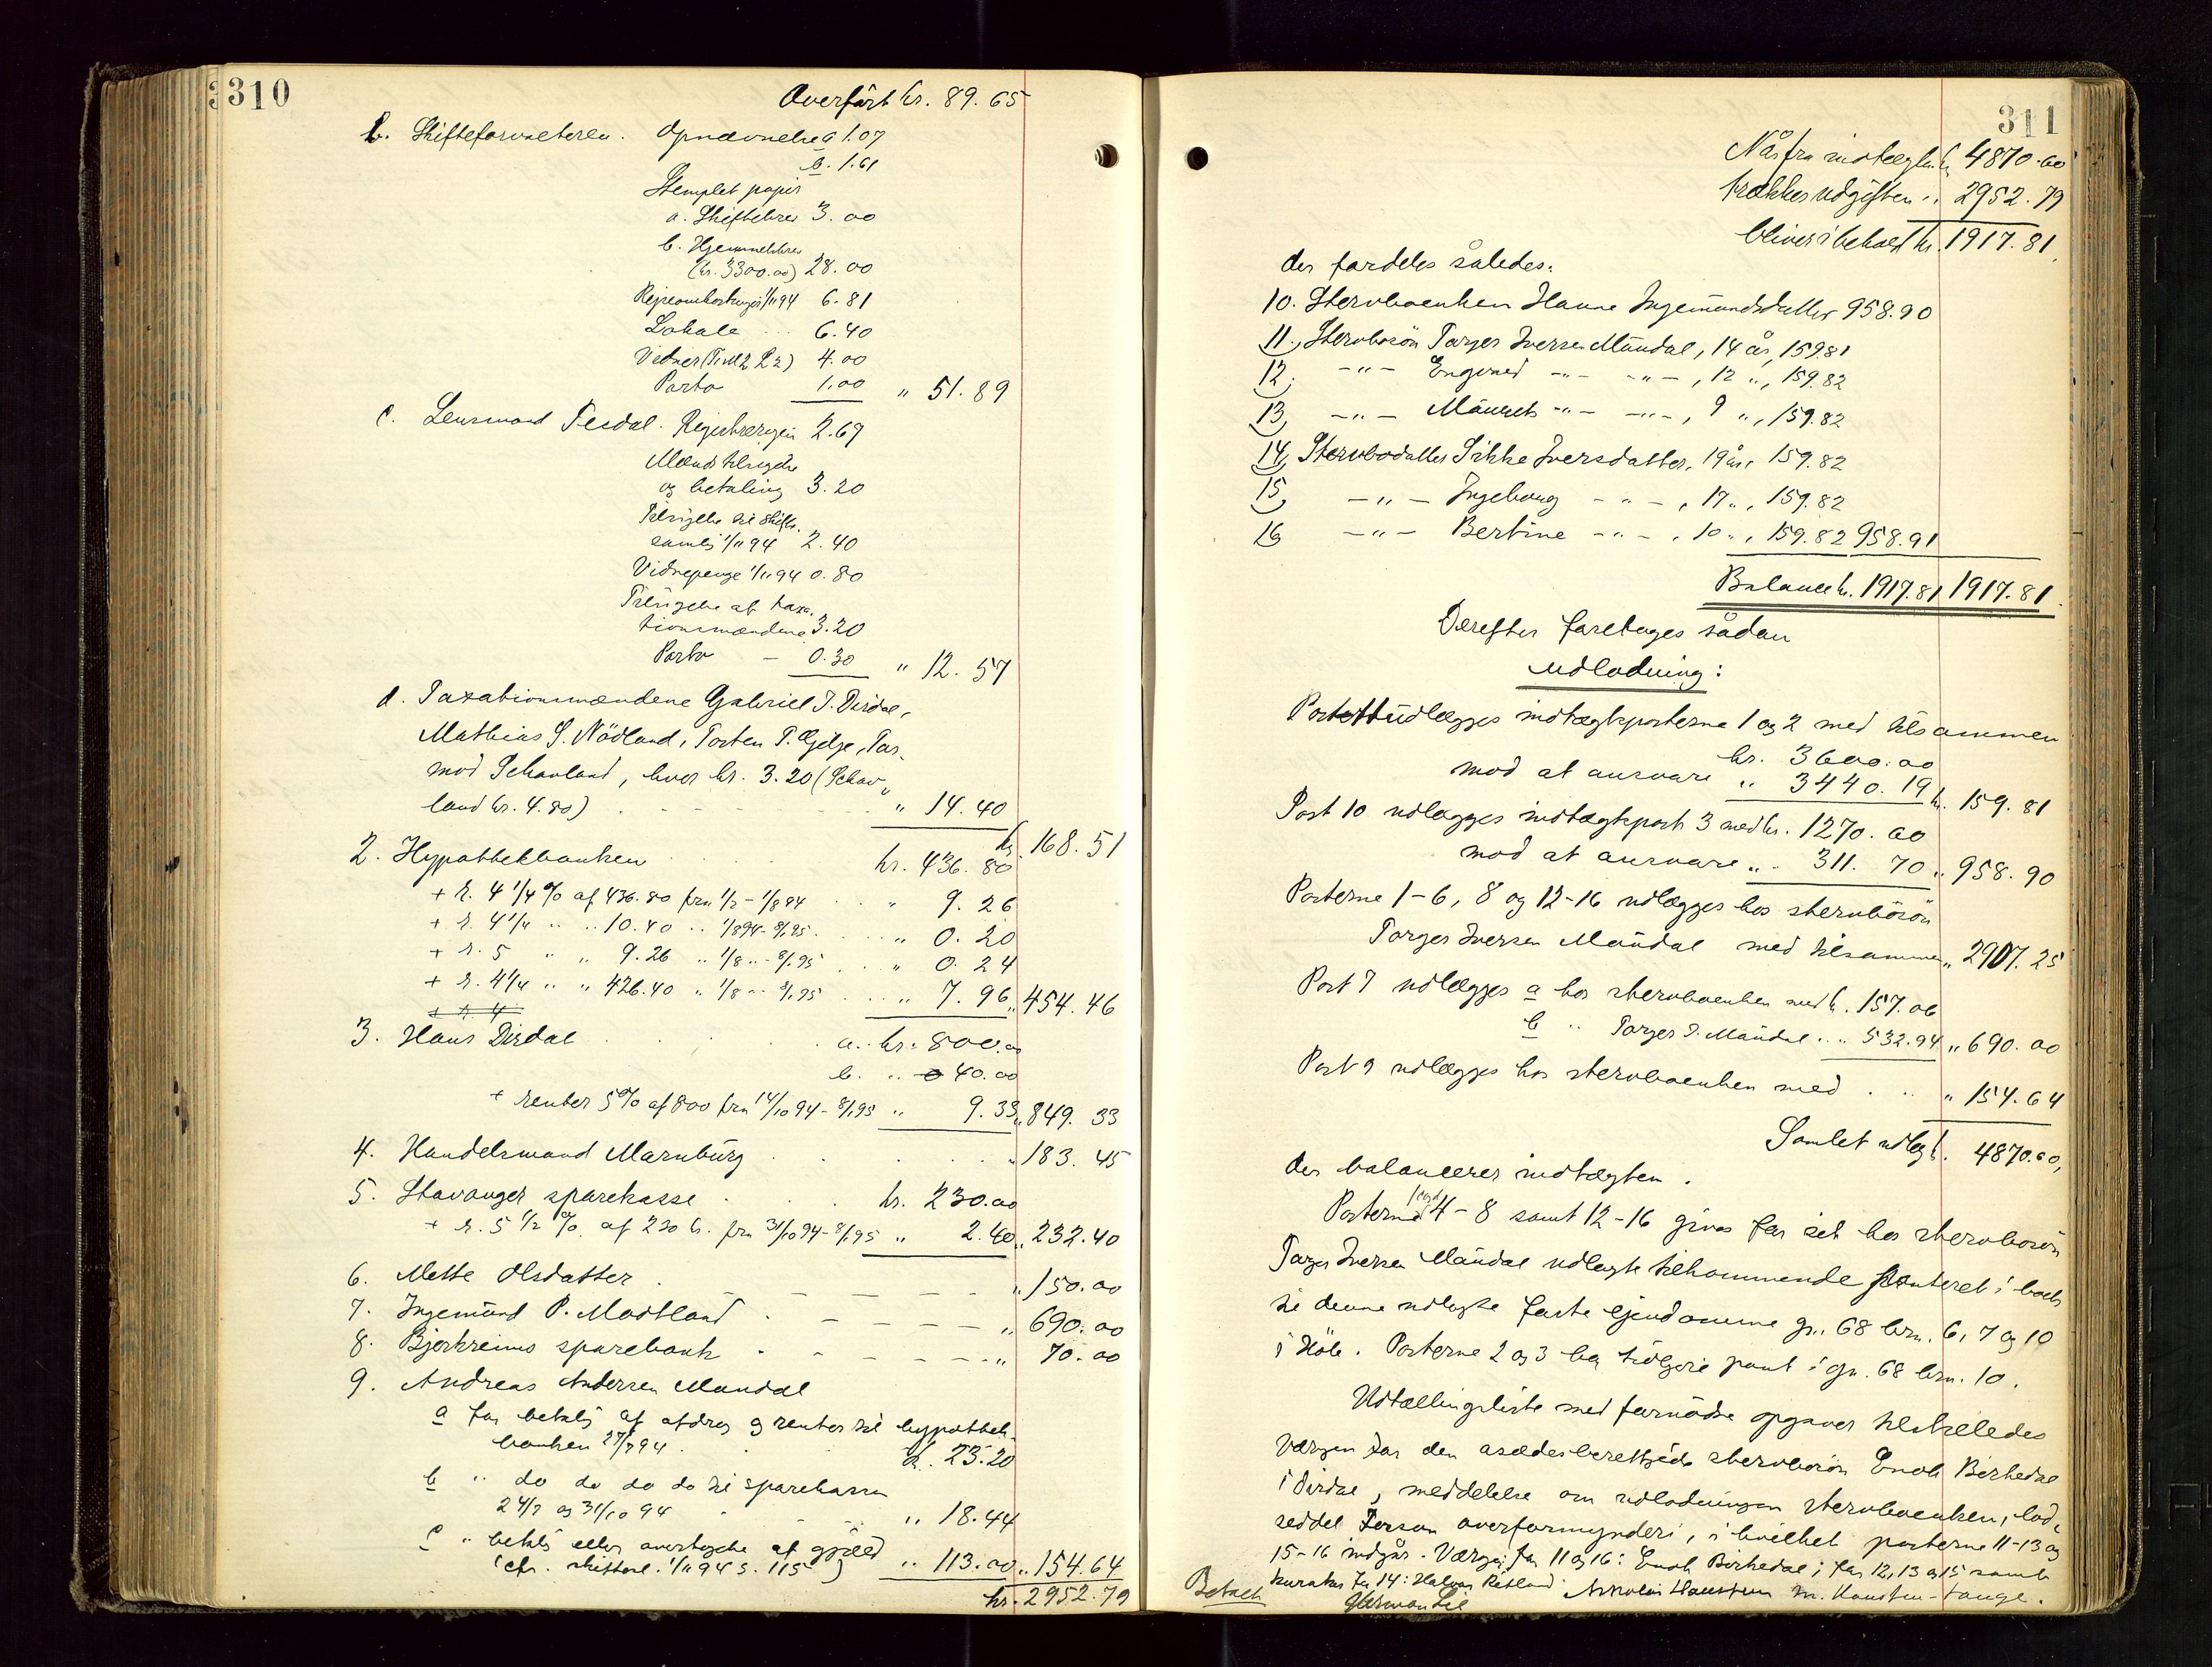 310
Overført kr. 89.65
b. Skifteforvalteren. Opnævnelse a 1.07
b. 1.61
Stemplet papir
a. Skiftebrev 3.00
b. Hjemmelsbrev
(kr. 3300.00) 28.00
Rejseomkostninger 1/11 94 6.81
Lokale 6.40
Vidner 4.00
Porto 1.00 " 51.89
c. Lensmand Tesdal. Registreringen 2.69
Mænds tilsigelse
og betaling 3.20
Tilsigelse til skifte-
samli 1/11 94 2.40
Vidnepenge 1/11 94 0.80
Tilsigelse af taxa-
tionsmændene 3.20
Porto - 0.30 " 12.57
d. Taxationsmændene Gabriel T. Dirdal,
Mathias S. Nödland, Torten P. Gilje, Tor-
mod Schavland, hver kr. 3.20 (Schav-
land kr. 4.80) " 14.40
kr. 168.51
2. Hypothekbanken kr. 436.80
+ r. 4 1/4 % af 436.80 fra 1/2 - 1/8 94 " 9.26
+ r. 4 1/4 " " 10.40 " 1/8 94 - 8/1 95 " 0.20
+ r. 5 " " 9.26 " 1/8 " - 8/1 95 " 0.24
+ r. 4 1/4 " " 426.40 " 1/8 " - 8/1 95 " 7.96 " 454.46
+ r. 4
3. Hans Dirdal a. kr. 800.00
b. " 40.00
+ renter 5% af 800 fra 14/10 94 - 8/1 95 " 9.33 " 849.33
4. Handelsmand Marnburg " 183.45
5. Stavanger sparekasse kr. 230.00
+ r. 5 1/2 % af 230 kr. fra 31/10 94 - 8/1 95 " 2.40 " 232.40
6. Mette Olsdatter " 150.00
7. Ingemund P. Madland " 690.00
8. Bjerkreims sparebank " 70.00
9. Andreas Andersen Mandal
a for betali af afdrag og renter til hypothek-
banken 27/7 94 kr. 23.20
b " do do do do til sparekassen
24/7 og 31/10 94 " 18.44
c " betali eller overtagelse af gjæld
(cfr. skiftesl. 1/11 94 s. 115) " 113.00 " 154.64
kr. 2952.79
311
Når fra indtægten kr. 4870.60
trækkes udgiften " 2952.79
bliver i behold kr. 1917.81,
der fordeles således:
10. Stervboenken Hanne Ingemundsdatter 958.90
11. Stervbosön Torger Iversen Mandal, 14 år, 159.81
12. -"- Engvald -"- -"-, 12 ", 159.82
13 -"- Maurets -"- -"-, 9 ", 159.82
14 Stervbodatter Sikke Iversdatter, 19 år, 159.82
15 -"- Ingeborg -"-, 17 ", 159.82
16 -"- Bertine -"-, 10 ", 159.82 958.91
Balance kr. 1917.81 1917.81.
Derefter foretages sådan
udlodning:
Post 11 udlægges indtægtsposterne 1 og 2 med tilsammen
kr. 3600.00
mod at ansvare " 3440.19 kr. 159.81
Post 10 udlægges indtægtspost 3 med kr. 1270.60
mod at ansvare " 311.70 " 958.90
Posterne 1-6, 8 og 12-16 udlægges hos stervbosön
Torger Iversen Mandal med tilsammen " 2907.25
Post 7 udlægges a hos stervboenken med kr. 157.06
b " Torger I. Mandal " 532.94 " 690.00
Post 9 udlægges hos stervboenken med " 154.64
Samlet udlagt 4870.60,
der balancerer indtægten.
Posterne 1 og 4-8 samt 12-16 gives for sit hos stervbosön
Torger Iversen Mandal udlagte tilkommende panteret i boets
til denne udlagte faste ejendomme gn. 68 brn. 6, 7 og 10
i Höle. Posterne 2 og 3 har tidligere pant i gn. 68 brn. 10.
Udtællingsliste med fornödne opgaver tilstilledes
værgen for den asædesberettigede stervbosön Enok Birkedal
i Dirdal, meddelelse om udlodningen stervboenken, lod-
seddel overformynderi, i hvilket posterne 11-13 og
15-16 indgår. Værge for 11 og 16: Enok Birkedal; for 12, 13 og 15 samt
kurator for 14: Halvor Røtland.
Betalt